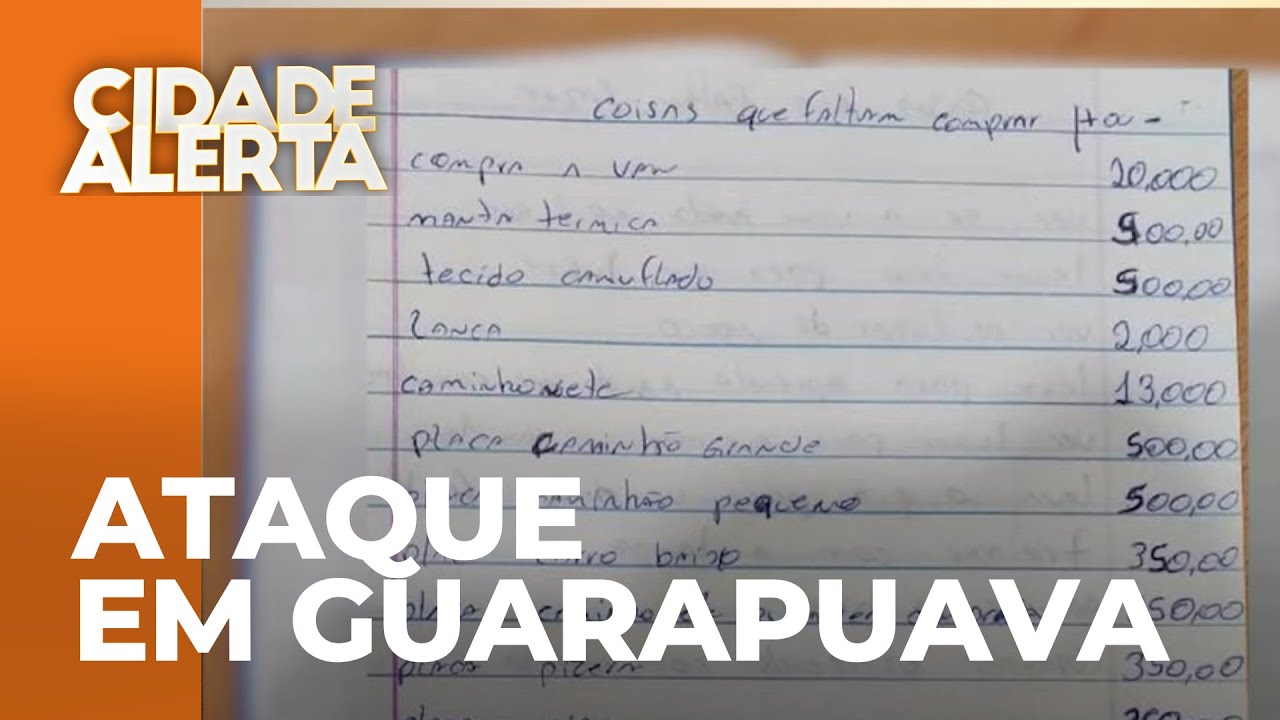 CIDADE
ALERTA
coisas que faltam comprar
compra a van 20,000
manta termica 900,00
tecido camuflado 500,00
Lanca 2,000
caminhonete 13,000
placa caminhão grande 500,00
caminhão pequeno 500,00
baixo 350,00
placa 50,00
placa 350,00
ATAQUE
EM GUARAPUAVA